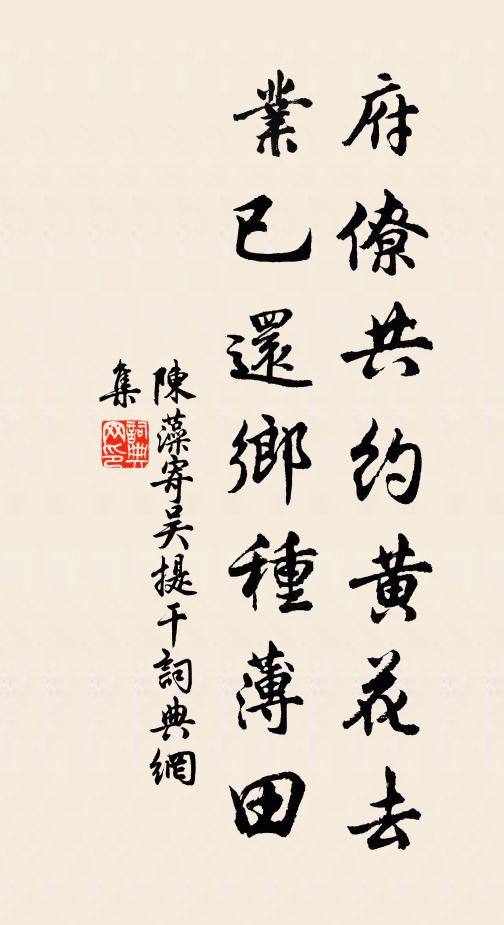 府僚共約黄花去
業已還鄉種薄田
陳藻寄吴提干詞典網
集
詞典網印